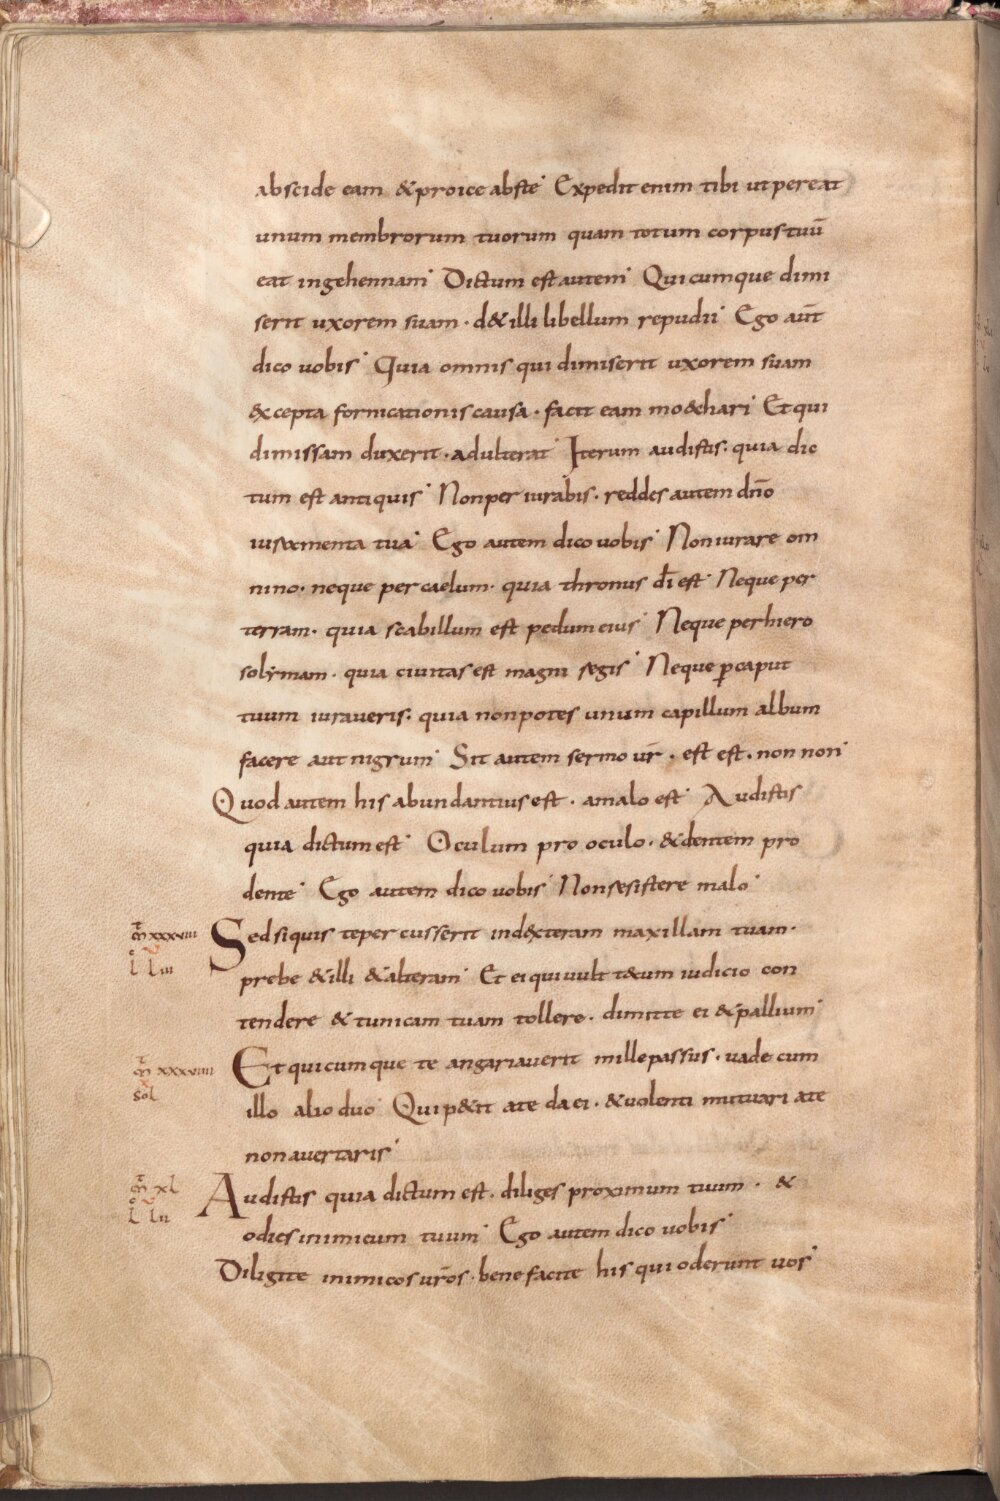 abscide eam & proice abste Expedit enim tibi ut pereat
unum membrorum tuorum quam totum corpus tuū
eat ingehennam Dictum est autem Quicumque dimi
serit uxorem suam · d&illi libellum repudii Ego aūt
dico uobis Quia omnis qui dimiserit uxorem suam
excepta fornicationis causa · facit eam moechari Et qui
dimissam duxerit · adulterat Iterum audistis · quia dic
tum est antiquis Non periurabis · reddes autem dn̄o
iuramenta tua Ego autem dico uobis Non iurare om
nino · neque per caelum · quia thronus dī est Neque per
terram · quia scabillum est pedum eius Neque perhiero
solymam · quia ciuitas est magni regis Neque ꝑ caput
tuum iuraueris · quia non potes unum capillum album
facere aut nigrum Sit autem sermo ur̄ · est est · non non
Quod autem his abundantius est · amalo est Audistis
quia dictum est Oculum pro oculo · & dentem pro
dente Ego autem dico uobis Non resistere malo
m̄ xxxviii Sed siquis te percusserit indexteram maxillam tuam ·
l liii prebe &illi & alteram Et ei qui uult tecum iudicio con
tendere & tunicam tuam tollere · dimitte ei & pallium
m̄ xxxviiii Et quicumque te angariauerit mille passus · uade cum
sol illo alio duo Qui p&it ate da ei · & uolenti mutuari ate
non auertaris
m̄ xl Audistis quia dictum est · diliges proximum tuum · &
l lii odies inimicum tuum Ego autem dico uobis
Diligite inimicos ur̄os · bene facite his qui oderunt uos